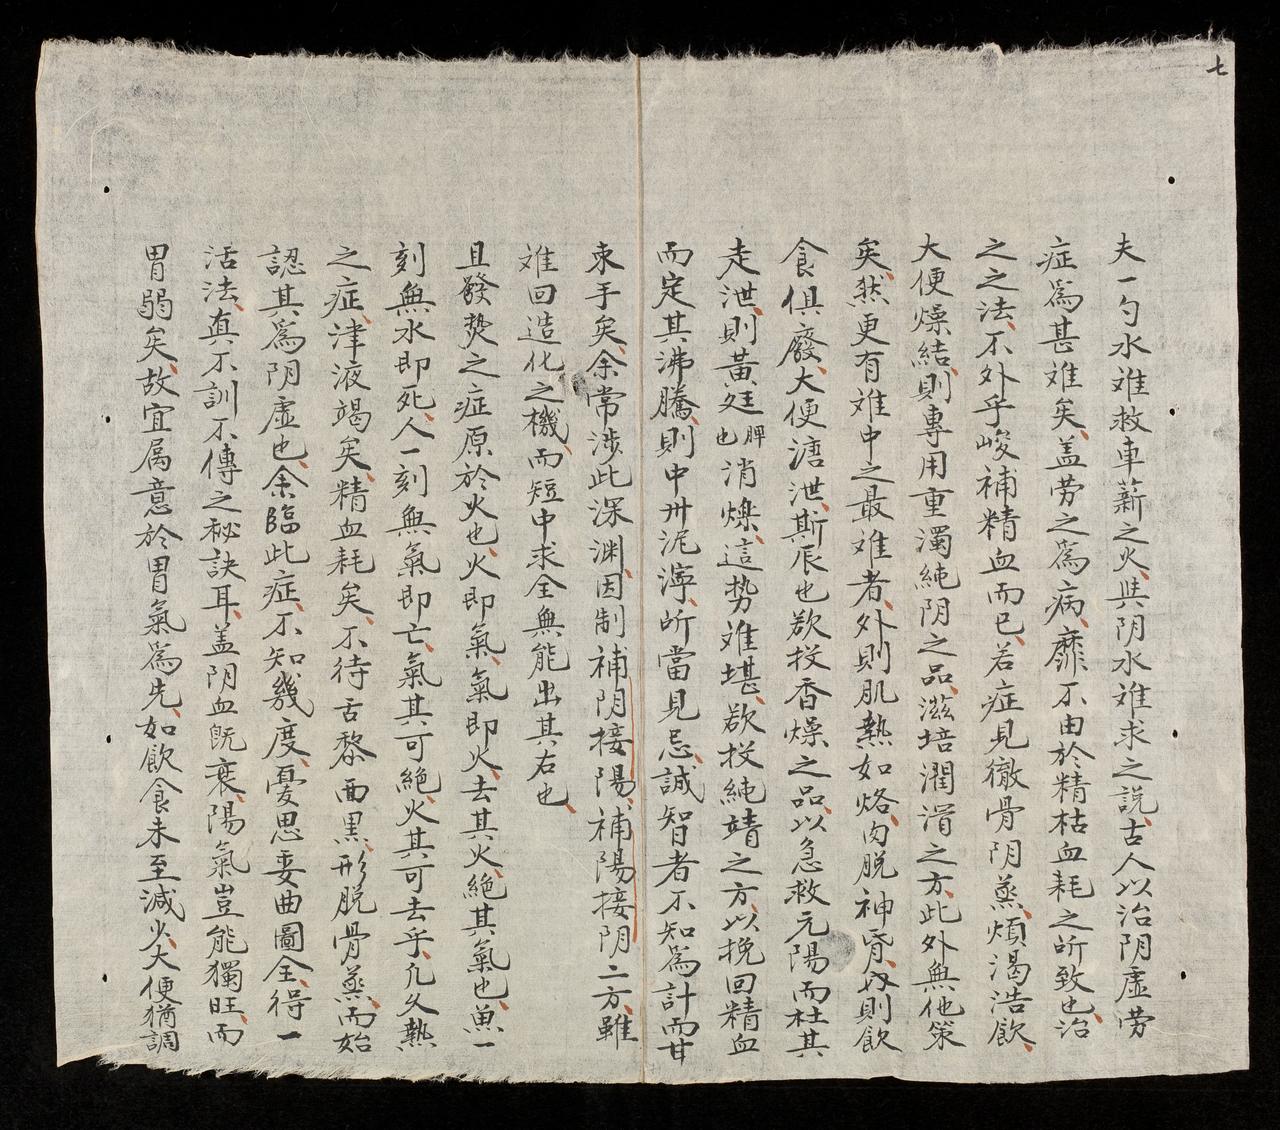 七
夫一勺水难救車薪之火與阴水难求之説古人以治阴虚劳
症爲甚难矣盖劳之爲病靡不由於精枯血耗之所致也治
之之法不外乎峻補精血而已若症見徹骨阴蒸煩渴浩飲
大便燥結則專用重濁純阴之品滋培潤滑之方此外無他策
矣然更有难中之最难者外則肌熱如烙肉脱神昏内則飲
食俱廢大便溏泄斯辰也欲投香燥之品以急救元陽而杜其
走泄則黃廷脾也消爍這势难堪欲投純靖之方以挽回精血
而定其沸騰則中州泥濘所當見忌誠智者不知爲計而甘
束手矣余常涉此深渊因制補阴接陽補陽接阴二方雖
难回造化之機而短中求全無能出其右也
且發熒之症原於火也火即氣氣即火去其火絶其氣也魚一
刻無水即死人一刻無氣即亡氣其可絶火其可去乎凡久熱
之症津液竭矣精血耗矣不待舌黎面黒形脱骨蒸而始
認其爲阴虚也余臨此症不知幾度憂思委曲圖全得一
活法真不訓不傳之秘訣耳盖阴血既衰陽氣豈能獨旺而
胃弱矣故宜属意於胃氣爲先如飲食未至減少大便猶調